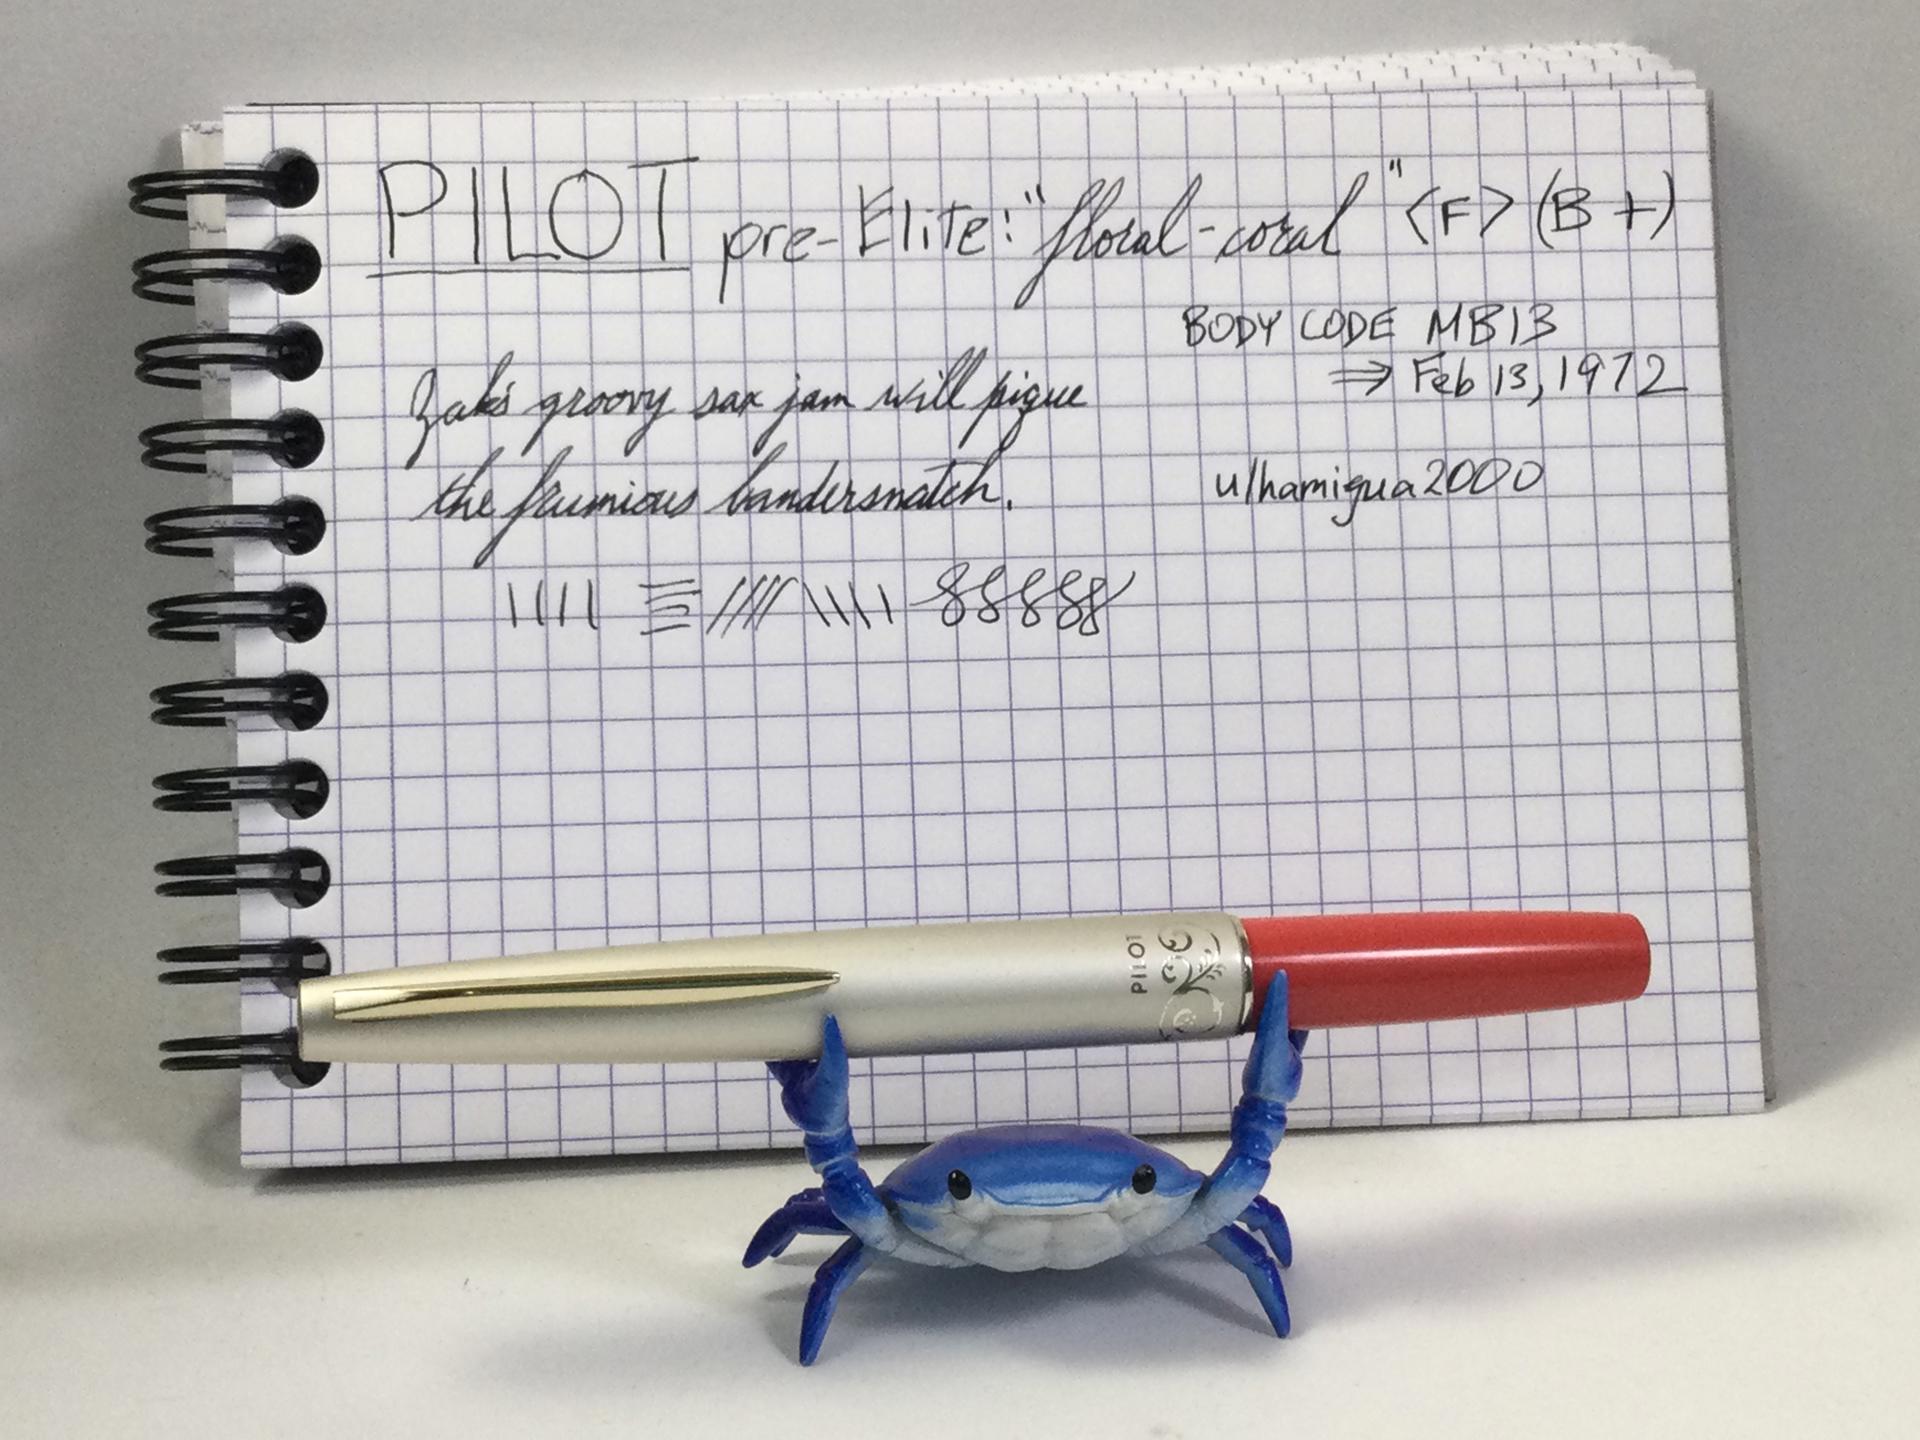 PILOT pre-Elite: "floral-coral" <F> (B+)
BODY CODE MB13
⇒ Feb 13, 1972
Zak's groovy sax jam will pique
the frumious bandersnatch.
u/hamigua2000
PILOT